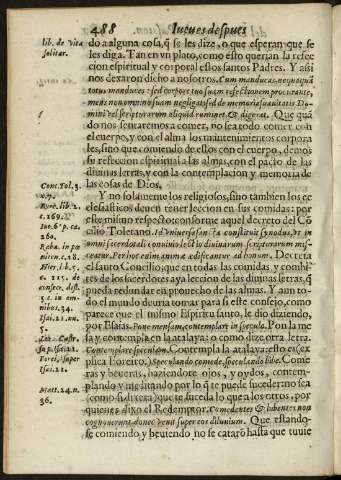 488 Iueues despues
lib. de vita
solitar.
do a alguna cosa, q̃ se les dize, o que esperan que se
les diga. Tan en vn plato, como esto querian la refec
cion espiritual y corporal estos santos Padres. Y assi
nos dexaron dicho a nosotros. Cum manducas, nequaquã
totus manduces: sed corpore tuo suam refectionem procurante,
mens non omnino suam negligat: sed de memoria suauitatis Do
mini vel scripturarum aliquid ruminet & digerat. Que quã
do nos sentaremos a comer, no sea todo comer con
el cuerpo, y con el alma los mantenimientos corpora
les, sino que comiendo de estos con el cuerpo, demos
su refeccion espiritual a las almas, con el pacto de las
diuinas letras, y con la contemplacion y memoria de
las cosas de Dios.
Conc. Tol. 3.
c. 7.
Bure. lib. 2.
c. 269.
Iuo. 6. p. ca.
260.
Raba. in pœ
niten. c. 18.
Hier. lib. 5.
c. 215. de
consec. dist.
5. c. in om
nibus. 34.
Isai. 21. nu.
5.
Y no solamente los religiosos, sino tambien los ec
clesiasticos deuen tener leccion en sus comidas: por
este mismo respecto conforme aquel decreto del Cõ
cilio Toletano. Id vniuersa sancta constituit synodus, vt in
omni sacerdotali conuiuio lectio diuinarum scripturarum mis-
ceatur. Per hoc enim animæ ædificantur ad bonum. Decreta
el santo Concilio, que en todas las comidas y combi-
tes de los sacerdotes aya leccion de las diuinas letras, q̃
pueda redundar en prouecho de las almas. Y aun to-
do el mundo deuria tomar para si este consejo, como
parece que el mismo Espiritu santo, le dio diziendo,
por Esaias. Pone mensam, contemplare in specula. Pon la me
sa y contempla en la atalaya: o como dize otra letra.
Contemplare speculam. Contempla la atalaya: esto es (ex
plica Foreiro.) Speculando comede, speculando bibe. Come
ras y beueras, haziendote ojos, y oydos, contem-
plando y meditando por lo q̃ te puede suceder: no sea
(como si dixera) que te suceda lo que a los otros, por
quienes dixo el Redemptor. Comedentes & bibentes non
cognouerunt donec venit super eos diluuium. Que estando-
se comiendo y beuiendo no se cataro hasta que tuuie
su p. Isai. 21.
Forei. super
Isai. 21.
Matt. 24. n.
36.